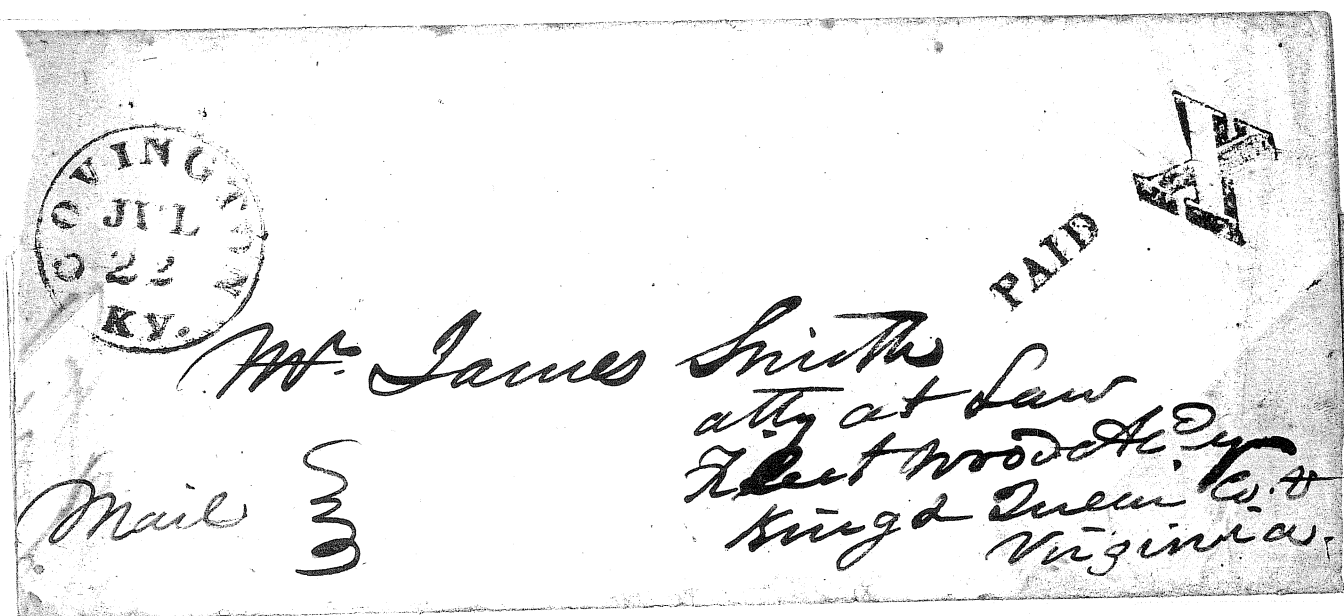 COVINGTON
JUL
22
Ky.
PAID
Mr. James Smith
atty at Law
Fleet Wood Acdy
King & Queen Co.
Virginia.
Mail